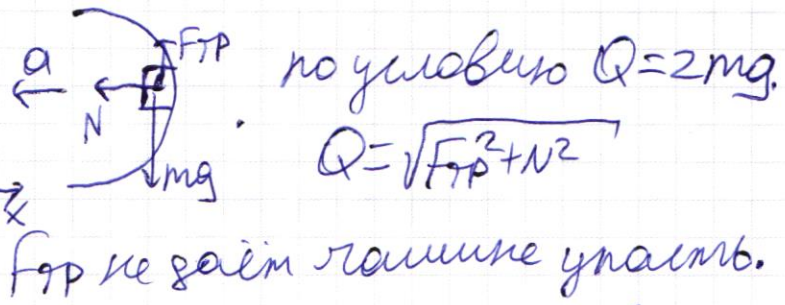 Fтр
a
N
mg
x
по условию Q=2mg.
Q=√Fтр²+N²
Fтр не даёт машине упасть.